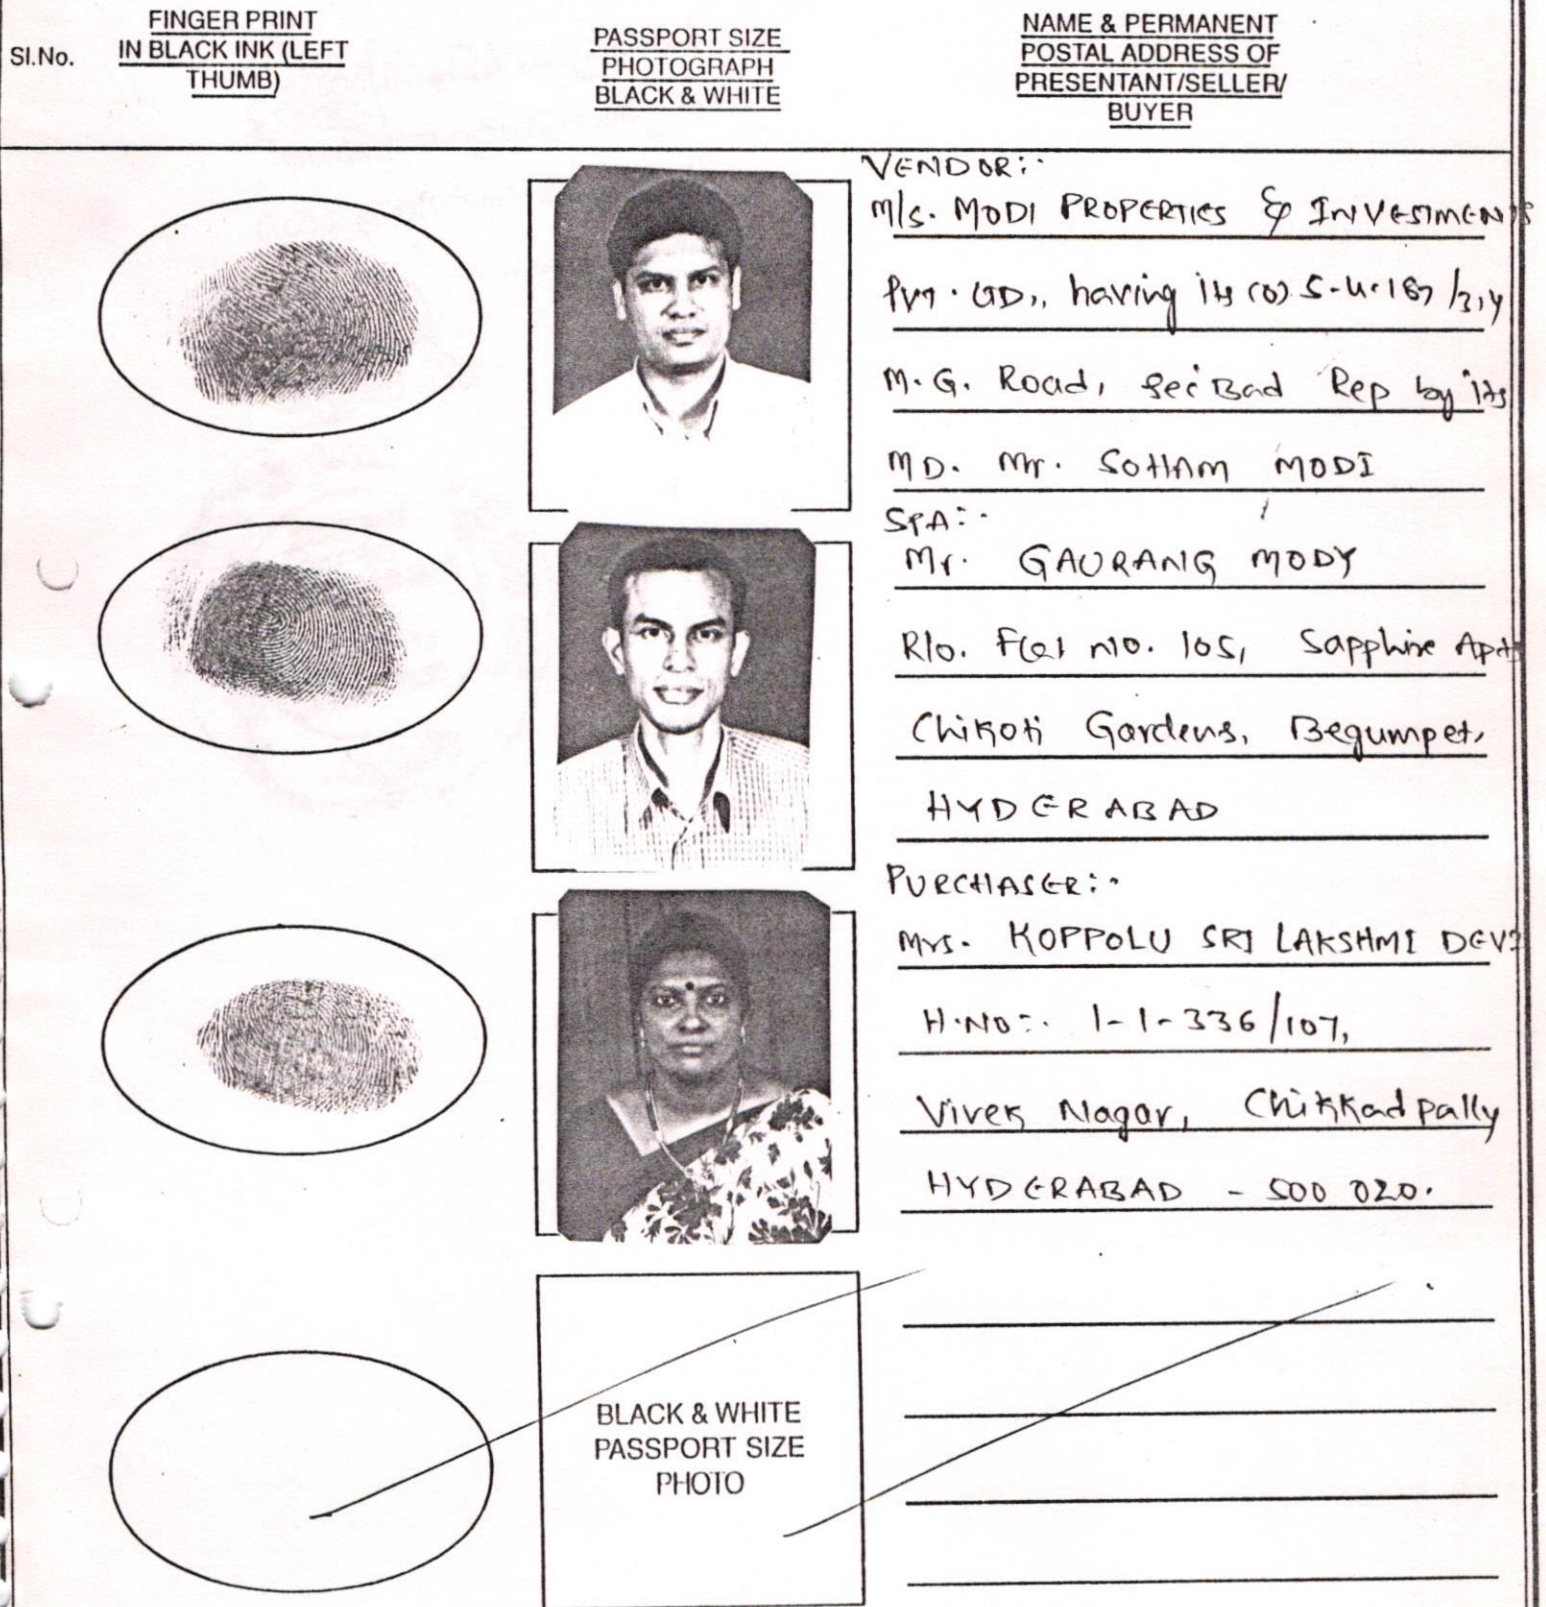 Sl.No.
FINGER PRINT
IN BLACK INK (LEFT
THUMB)
PASSPORT SIZE
PHOTOGRAPH
BLACK & WHITE
NAME & PERMANENT
POSTAL ADDRESS OF
PRESENTANT/SELLER/
BUYER
VENDOR:-
M/s. MODI PROPERTIES & INVESTMENTS
Pvt. LTD., having its (O) 5-4-187/3,4
M.G. Road, Sec'Bad Rep by its
MD. Mr. SOHAM MODI
SPA:-
Mr. GAURANG MODY
R/o. Flat No. 105, Sapphire Apts
Chikoti Gardens, Begumpet,
HYDERABAD
PURCHASER:-
Mrs. KOPPOLU SRI LAKSHMI DEVI
H.NO:. 1-1-336/107,
Vivek Nagar, Chikkadpally
HYDERABAD - 500 020.
BLACK & WHITE
PASSPORT SIZE
PHOTO